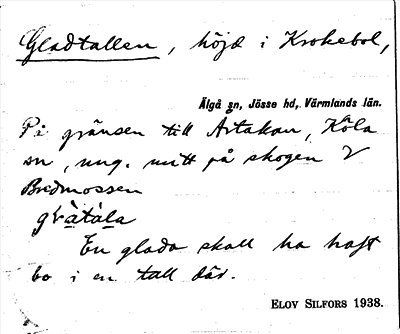 Gladtallen, höjd i Krokebol,
Älgå sn, Jösse hd, Värmlands län.
På gränsen till Årtakan, Köla
sn, ung. mitt på skogen V
Bredmossen
En glada skall ha haft
bo i en tall där.
ELOV SILFORS 1938.